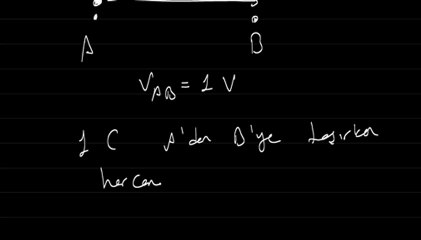 A B
V_AB = 1 V
1 C A'dan B'ye taşırken
harcan